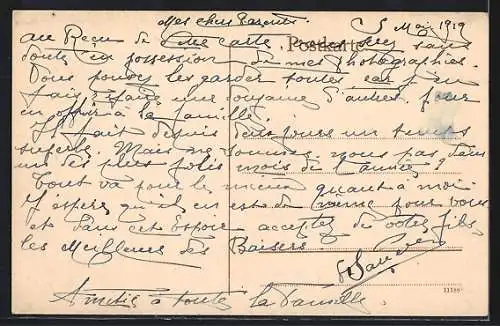 Mes chers Parents.
5 Mai 1919
Postkarte
au Reçu de cette carte, vous serez sans
doute en possession de mes photographies.
Vous pouvez les garder toutes car j'en
fais refaire une douzaine d'autres pour
en offrir à la famille.
Il fait depuis deux jours un temps
superbe. Mais ne sommes-nous pas dans
un des plus jolis mois de l'année.
Tout va pour le mieux quant à moi
J'espère qu'il en est de même pour vous
et dans cet Espoir acceptez de votre fils,
les meilleurs des Baisers
Amitié à toute la famille.
11188